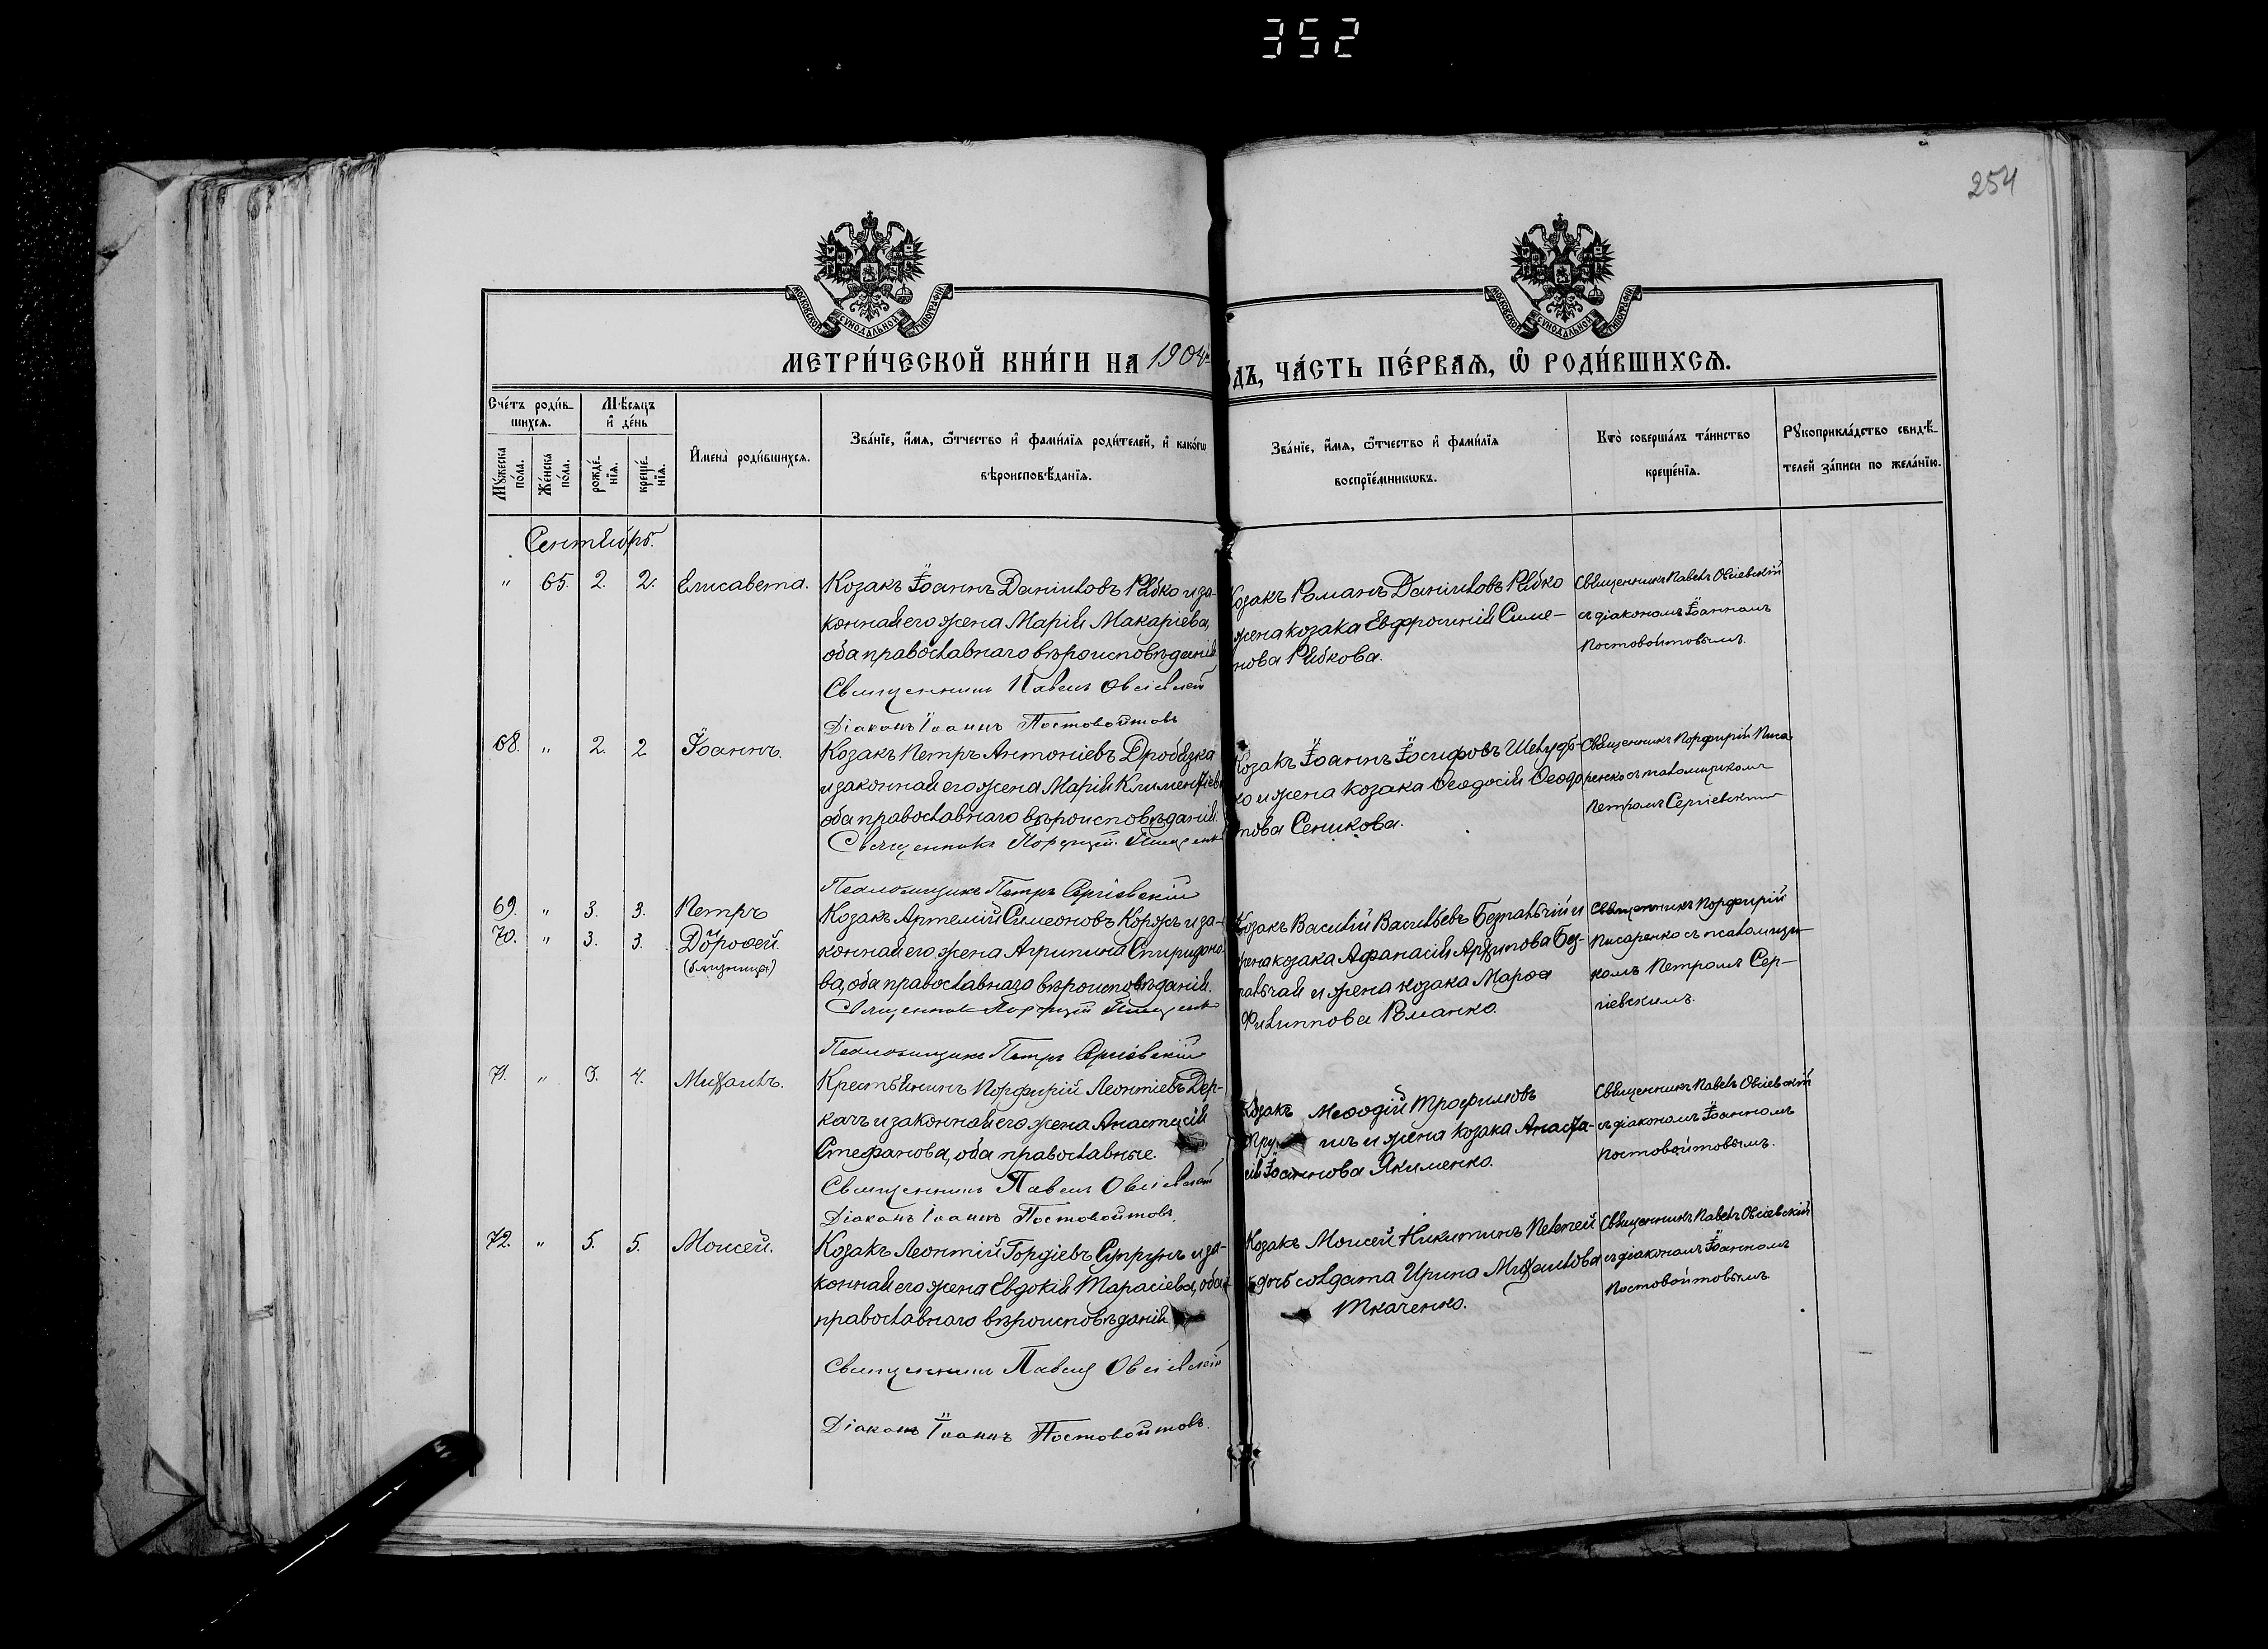 352
254
МОСКОВСКОЙ СѴНОДАЛЬНОЙ ТИПОГРАФІИ
МОСКОВСКОЙ СѴНОДАЛЬНОЙ ТИПОГРАФІИ
МЕТРИ́ЧЕСКОЙ КНИ́ГИ НА 1904й
ѻ́дъ, ЧА́СТЬ ПЕ́РВАѦ, Ѽ РОДИ́ВШИХСѦ.
Сче́тъ роди́в-
шихсѧ.
Мꙋ́жеска по́ла.
Же́нска по́ла.
Мѣ́сѧцъ
и҆ де́нь
рожде́-
нїѧ.
креще́-
нїѧ.
И҆мена̀ роди́вшихсѧ.
Зва́нїе, и҆́мѧ, ѻ҆́тчество и҆ фами́лїѧ роди́телей, и҆ како́гѡ
вѣроисповѣ́данїѧ.
Зва́нїе, и҆́мѧ, ѻ҆́тчество и҆ фами́лїѧ
воспрїе́мникѡвъ.
Кто̀ соверша́лъ та́инство
креще́нїѧ.
Рꙋкоприкла́дство свидѣ́-
телей за́писи по жела́нїю.
Сентябрь.
" 65. 2. 2. Елисавета.
Козакъ Іоаннъ Даніиловъ Рябко и за-
конная его жена Марія Макаріева,
оба православнаго вѣроисповѣданія
Священникъ Павелъ Овсіевскій
Діаконъ Іоаннъ Постовойтовъ
Козакъ Романъ Даніиловъ Рябко
жена козака Евфросинія Симе-
нова Рябкова.
Священникъ Павелъ Овсіевскій
съ діакономъ Іоанномъ
Постовойтовымъ.
68. " 2. 2 Іоаннъ.
Козакъ Петръ Антоніевъ Дробязка
и законная его жена Марія Климентіева
оба православнаго вѣроисповѣданія.
Священникъ Порфирій Писаренко
Псаломщикъ Петръ Сергіевскій
Козакъ Іоаннъ Іосифовъ Шелудь-
ко и жена козака Ѳеодосія Ѳеодо
това Сеникова.
Священникъ Порфирій Писа-
ренко съ псаломщикомъ
Петромъ Сергіевскимъ
69. " 3. 3. Петръ
70. " 3. 3. Дороѳей.
(близнецы)
Козакъ Артемій Симеоновъ Коржъ и за-
конная его жена Агрипина Спиридоно-
ва, оба православнаго вѣроисповѣданія.
Священникъ Порфирій Писаренко
Псаломщикъ Петръ Сергіевскій
Козакъ Василій Васильевъ Безпалчій и
жена козака Афанасія Архипова Без-
палчая и жена козака Марѳа
Филиппова Романко.
Священникъ Порфирій
Писаренко съ псаломщи-
комъ Петромъ Сер-
гіевскимъ.
71. " 3. 4. Михаилъ.
Крестьянинъ Порфирій Леонтіевъ Дер-
качъ и законная его жена Анастасія
Стефанова, оба православные.
Священникъ Павелъ Овсіевскій
Діаконъ Іоаннъ Постовойтовъ.
Козакъ Меѳодій Трофимовъ
и жена козака Анаста-
сія Іоаннова Якименко.
Священникъ Павелъ Овсіевскій
съ діакономъ Іоанномъ
Постовойтовымъ.
72. " 5. 5. Моисей.
Козакъ Леонтій Гордіевъ Супрунъ и за-
конная его жена Евдокія Тарасіева, оба
православнаго вѣроисповѣданія
Священникъ Павелъ Овсіевскій
Діаконъ Іоаннъ Постовойтовъ.
Козакъ Моисей Никитинъ Пелепей
дочь солдата Ирина Михаилова
Ткаченко.
Священникъ Павелъ Овсіевскій
съ діакономъ Іоанномъ
Постовойтовымъ